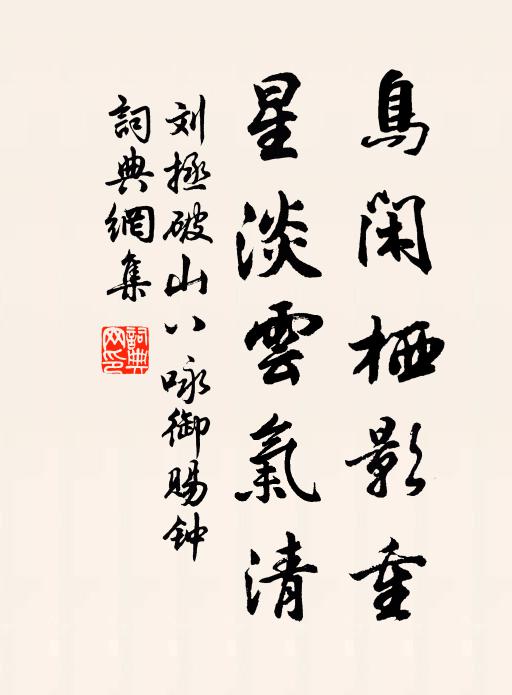 鳥閑栖影重
星淡雲氣清
刘拯破山八咏御賜钟
詞典網集
詞典網印